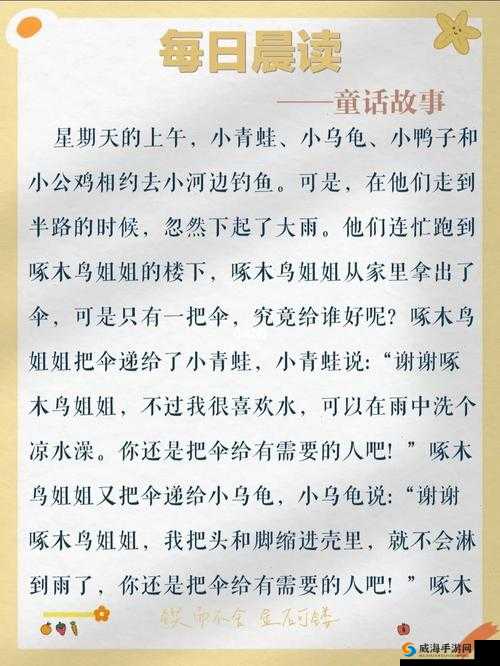 每日晨读
——童话故事
星期天的上午，小青蛙、小乌龟、小鸭子和
小公鸡相约去小河边钓鱼。可是，在他们走到
半路的时候，忽然下起了大雨。他们连忙跑到
啄木鸟姐姐的楼下，啄木鸟姐姐从家里拿出了
伞，可是只有一把伞，究竟给谁好呢？啄木鸟
姐姐把伞递给了小青蛙，小青蛙说：“谢谢啄
木鸟姐姐，不过我很喜欢水，可以在雨中洗个
凉水澡。你还是把伞给有需要的人吧！”啄木
鸟姐姐又把伞递给小乌龟，小乌龟说：“谢谢
啄木鸟姐姐，我把头和脚缩进壳里，就不会淋
到雨了，你还是把伞给有需要的人吧！”啄木
锲而不舍 金石可镂
威海手游网